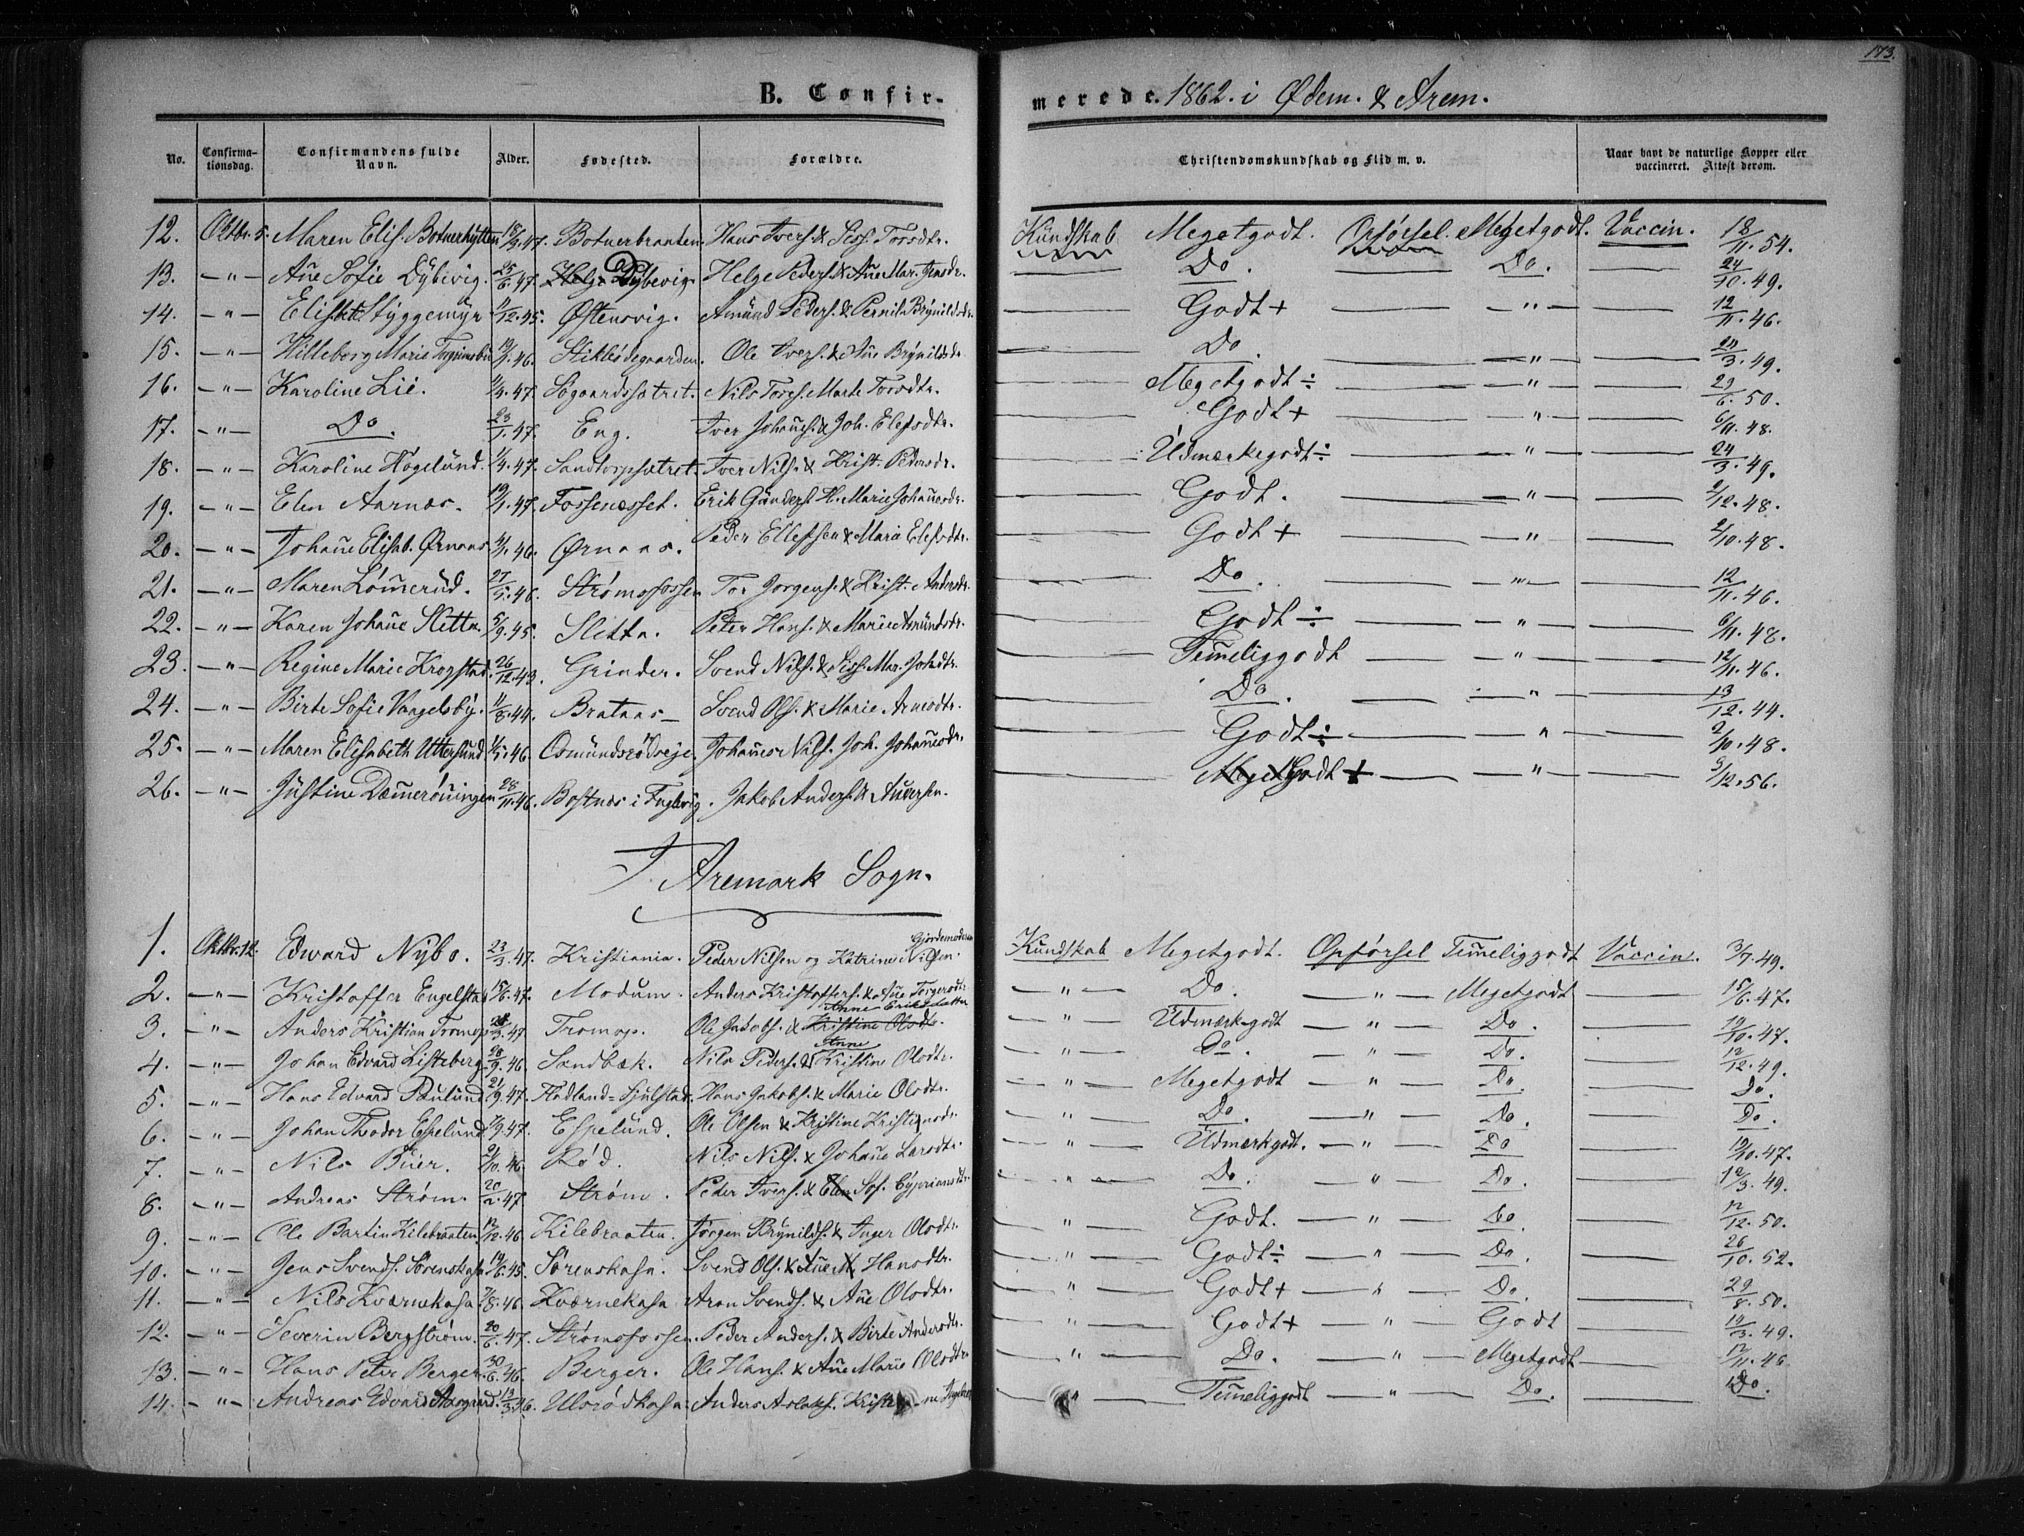 173.
B. Confir-
merede. 1862. i Ødem. & Arem.
No. Confirma-tionsdag. Confirmandens fulde Navn. Alder. Fødested. Forældre. Christendomskundskab og Flid m. v. Naar havt de naturlige Kopper eller vaccineret. Attest derom.
12. Oktbr. 5. Maren Elis. Botnerhytten 47. Botnerbraaten. Hans Ivers. & Torsdtr. Kundskab Megetgodt. Opførsel Megetgodt. Vaccin. 18/11. 54.
13. — " — Añe Sofie Dybivig. 25/6. 47. Dybevig. Helge Peders. & Añe Mar. Jensdr. Do. Do. 24/10. 49.
14. — " — Elisab. Styggemyr 11/12. 45. Østensvig. Amund Peders. & Pernil. Brynildsdr. Godt + " 12/11. 46.
15. — " — Hilleborg Marie 46. Stikledegaarden. Ole Ivers. & Añe Brynildsdr. Do. " 24/3. 49.
16. — " — Karoline Lie. 11/4. 47. Søgaardssætret. Nils Tores. Marte Torsdtr. Megetgodt ÷ " 29/6. 50.
17. — " — Do. 23/1. 47. Eng. Iver Johañes. & Joh. Elefsdtr. Godt + " 6/11. 48.
18. — " — Karoline Høgelund. 1/4. 47. Sandtorpsætret. Iver Nils. & Krist. Pedersdr. Udmærkegodt ÷ " 24/3. 49.
19. — " — Elen Aarnæs. 19/1. 47. Fossenæsset. Erik Gunders. H. Marie Johañesdr. Godt. " 2/12. 48.
20. — " — Johañe Elisab. Ørnaas 11/1. 46. Ørnaas. Peder Ellefsen & Maria Elefsdtr. Godt + " 2/10. 48.
21. — " — Maren Lømerud. 27/5. 46. Strømsfossen Tor Jørgens. & Krist. Andersdr. Do. " 12/11. 46.
22. — " — Karen Johañe Slitta. 5/9. 45. Slitta. Peter Hans. & Marie Amundsdr. Godt ÷ " 6/11. 48.
23. — " — Regine Marie Kropstad. 26/12. 43. Grinder. Svend Nils. & Siss. Mar. Johsdtr. Temeliggodt " 12/11. 46.
24. — " — Birte Sofie Vagelsby. 11/8. 44. Brataas — Svend Ols. & Marie Arnesdtr. Do. " 13/12. 44.
25. — " — Maren Elisabeth Uttersund 46. Osmundsrødseje. Johañes Nils. Joh. Johañesdr. Godt ÷ " 2/10. 48.
26. — " — Justine 28/11. 46. Bostnæs i . Jakob Anders. & Godt + " 3/12. 56.
I Aremark Sogn.
1. Oktbr. 12. Edward Nybo. 23/3. 47. Kristiania. Peder Nilsen og Katrine Nilsen. Kundskab Megetgodt. Opførsel Temeliggodt Vaccin. 3/7. 49.
2. — " — Kristoffer Engelstad 15/6. 47. Modum. Anders Kristoffers. & Añe Torgersdr. " Do. " Megetgodt 15/6. 47.
3. — " — Anders Kristian Tromop 47 Tromop. Ole Jakobs. & Kristine Olsdtr. Anne Eriksdatter " Udmærkegodt " Do. 19/10. 47.
4. — " — Johan Edvard Listeberg 28/9. 46 Sandbæk. Nils Peders. & Anne Kristine Olsdtr. " Do. " Do. 12/12. 49.
5. — " — Hans Edvard Paulund 21/9. 47. Fladland = Hans Jakobs. & Marie Olsdtr. " Megetgodt " Do. Do.
6. — " — Johan Theodor Espelund 7/9. 47. Espelund. Ole Olsen & Kristine Kristiansdr. " Do. " Do. Do.
7. — " — Nils Buer. 21/10. 46 Rød. Nils Nils. & Johañe Larsdtr. " Udmærkgodt. " Do 19/10. 47.
8. — " — Andreas Strøm. 20/2. 47 Strøm. Peder Ivers. & Sof. Cypriansdtr. " Do. " Do. 12/3. 49.
9. — " — Ole Bartin Kilebraaten. 12/12. 46 Kilebraaten. Jørgen Brynilds. & Inger Olsdtr. " Godt. " Do 12/12. 50.
10. — " — Jens Svends. Sørenskasa 19/6. 45. Sørenskasa. Svend Ols. & Añe M. Hansdtr. " Godt ÷ " Do. 26/10. 52.
11. — " — Nils Kværnekasa. 7/8. 46. Kværnekasa Aron Svends. & Añe Olsdtr. " Godt + " Do. 29/8. 50.
12. — " — Severin Bergstrøm. 20/6. 47. Strømsfossen. Peder Anders. & Birte Andersdtr. " Godt + " Godt 19/3. 49.
13. — " — Hans Peter Berger. 30/6. 46. Berger. Ole Hans. & Añe Marie Olsdtr " Do. " Megetgodt 12/11. 46
14. — " — Andreas Edvard Aasgaard. 13/3. 46. Ulsrødkasa. Anders Aslaks. Temeliggodt " Do. Do.